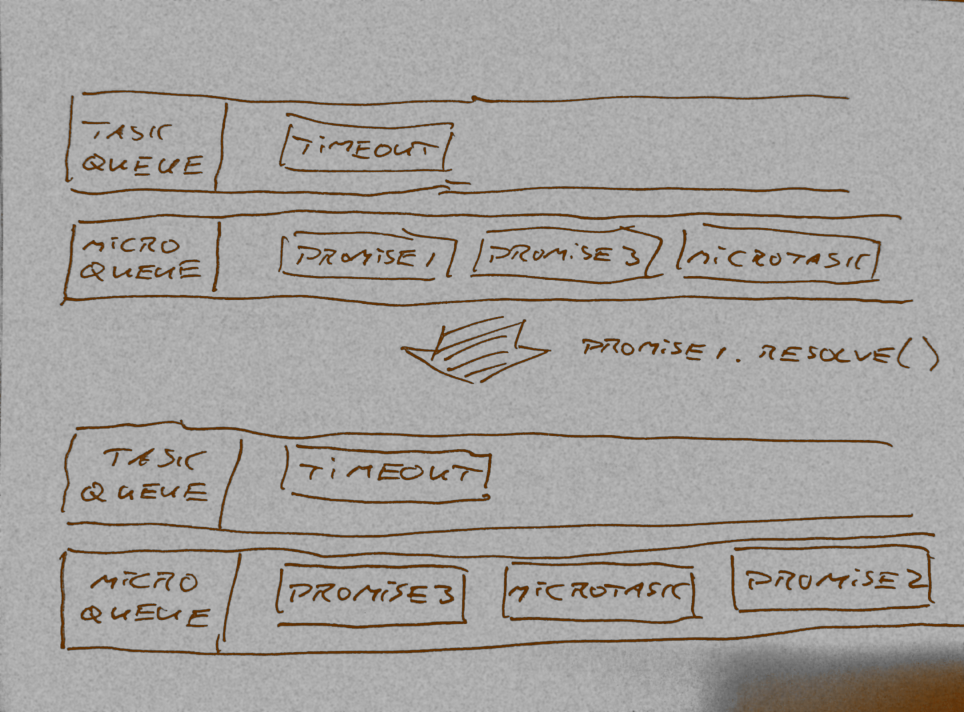 TASK
QUEUE
TiMEOUT
MiCRO
QUEUE
PROMiSE 1
PROMiSE 3
MiCROTASK
PROMiSE 1. RESOLVE()
TASK
QUEUE
TiMEOUT
MiCRO
QUEUE
PROMiSE 3
MiCROTASK
PROMiSE 2